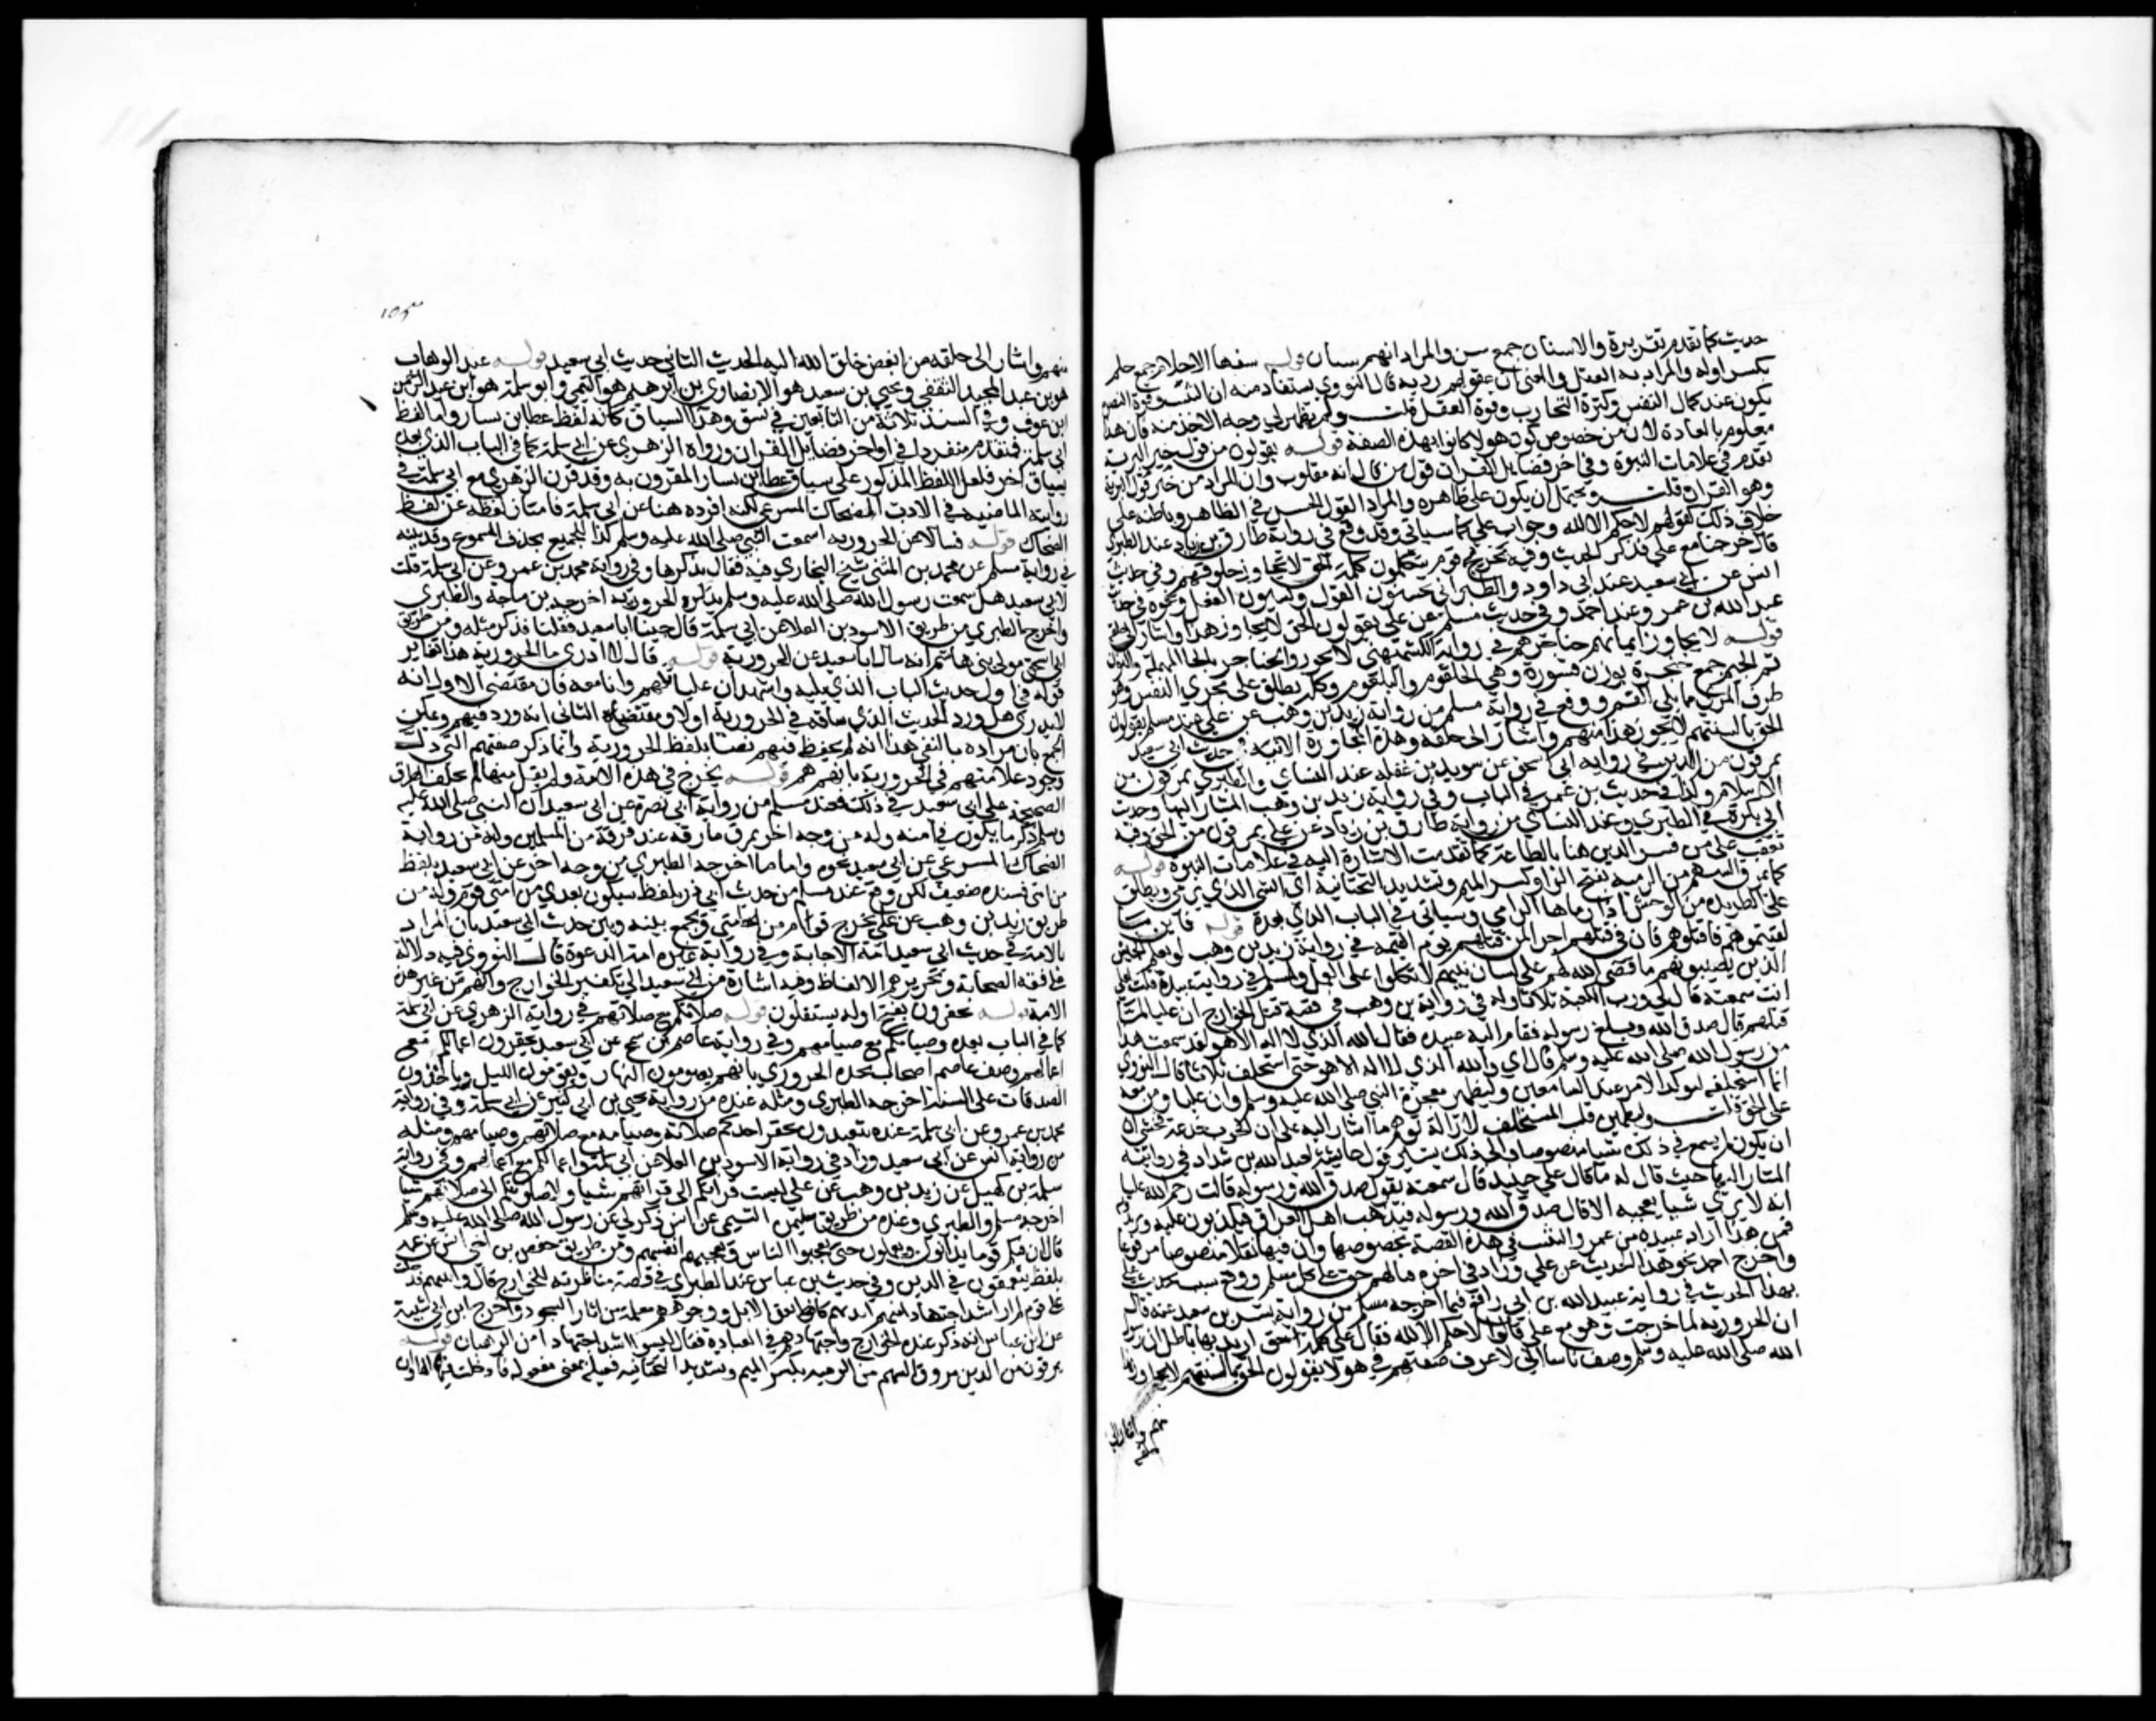 حديث كما تقدم تقريره والاسنان جمع سن والمراد انهم شبان قوله سفها الاحلام جمع حلم
بكسر اوله والمراد به العقل والمعني ان عقولهم ردية قال النووي يستفاد منه ان التثبت وقوة البصيرة
تكون عند كمال السن وكثرة التجارب وقوة العقل قلت ولم يظهر لي وجه الاخذ منه فان هذا
معلوم بالعادة لا من خصوص كون هولا كانوا بهذه الصفة قوله يقولون من قول خير البرية
تقدم في علامات النبوة وفي اخر فضايل القران قول من قال انه مقلوب وان المراد من خير قول البرية
وهو القران قلت ويحتمل ان يكون على ظاهره والمراد القول الحسن في الظاهر وباطنه على
خلاف ذلك كقولهم لا حكم الا لله وجواب علي كما سياتي وقد وقع في رواية طارق بن زياد عند الطبري
قال خرجنا مع علي فذكر الحديث وفيه يخرج قوم يتكلمون كلمة الحق لا تجاوز حلوقهم وفي حديث
انس عن ابي سعيد عند ابي داود والطبراني يحسنون القول ويسيون الفعل ونحوه في حديث
عبد الله بن عمرو عند احمد وفي حديث مسلم عن علي يقولون الحق لا يجاوز هذا واشار الى حلقه
قوله لا يجاوز ايمانهم حناجرهم في رواية الكشميهني لا يجوز والحناجر بالحا المهملة والنون
ثم الجيم جمع حنجرة بوزن قسورة وهي الحلقوم والبلعوم وكله يطلق على مجري النفس وهو
طرف المري مما يلي الفم ووقع في رواية مسلم من رواية زيد بن وهب عن علي
الحق بالسنتهم لا يجوز هذا منهم واشار الى حلقه وهذه المجاوزة
يمرقون من الدين في رواية ابي اسحق عن سويد بن غفله عند النساي والطبري يمرقون من
الاسلام وكذا في حديث بن عمر في الباب وفي رواية زيد بن وهب المشار اليها وحديث
ابي بكرة في الطبري وعند النساي من رواية طارق بن زياد عن علي يمرقون من الحق وفيه
تعقب على من فسر الدين هنا بالطاعة كما تقدمت الاشارة اليه في علامات النبوة قوله
كما يمرق السهم من الرمية بفتح الرا وكسر الميم وتشديد التحتانية اي الشي الذي يرمي ويطلق
على الطريدة من الوحش اذا رماها الرامي وسياتي في الباب الذي بعده قوله فاينما
لقيتموهم فاقتلوهم فان في قتلهم اجرا لمن قتلهم يوم القيمة في رواية زيد بن وهب لو يعلم الجيش
الذين يصيبونهم ما قضى الله لهم على لسان نبيهم لاتكلوا على العمل ولمسلم في رواية عبيدة قلت لعلي
انت سمعته قال اي ورب الكعبة ثلاثا وله في رواية بن وهب في قصة قتل الخوارج ان عليا لما
قتلهم قال صدق الله وبلغ رسوله فقام اليه عبيدة فقال الله الذي لا اله الا هو لقد سمعت هذا
من رسول الله صلى الله عليه وسلم قال اي والله الذي لا اله الا هو حتى استحلف ثلاثا قال النووي
انما استحلفه ليوكد الامر عند السامعين وليظهر معجزة النبي صلى الله عليه وسلم وان عليا ومن معه
على الحق قلت وليطمين قلب المستحلف لازالة توهم ما اشار اليه علي ان الحرب خدعة فخشي ان
ان يكون لم يسمع في ذلك شيا منصوصا والى ذلك يشير قول عايشة لعبد الله بن شداد في روايته
المشار اليها حيث قال له ما قال علي حينيذ قال سمعته يقول صدق الله ورسوله قالت رحم الله عليا
انه لا يرى شيا يعجبه الا قال صدق الله ورسوله فيذهب اهل العراق فيكذبون عليه ويزيدون
فمن هذا اراد عبيدة بن عمرو التثبت في هذه القصة بخصوصها وان فيها نقلا منصوصا مرفوعا
واخرج احمد نحو هذا الحديث عن علي وزاد في اخره قتالهم حق على كل مسلم ووقع سبب تحديث علي
بهذا الحديث في رواية عبيد الله بن ابي رافع فيما اخرجه مسلم من رواية بشر بن سعيد عنه قال
ان الحرورية لما خرجت وهو مع علي قالوا لا حكم الا لله فقال علي كلمة حق اريد بها باطل ان رسول
الله صلى الله عليه وسلم وصف ناسا اني لاعرف صفتهم في هولا يقولون الحق بالسنتهم لا يجاوز هذا
منهم واشار الى
حلقه
منهم واشار الى حلقه من ابغض خلق الله اليه الحديث الثاني حديث ابي سعيد قوله عبد الوهاب
هو بن عبد المجيد الثقفي ويحيي بن سعيد هو الانصاري بن ابراهيم هو التيمي وابو سلمة هو ابن عبد الرحمن
ابن عوف وفي السند ثلاثة من التابعين في نسق وهذا السياق كانه لفظ عطا بن يسار واما لفظ
ابي سلمة فتقدم منفردا في اواخر فضايل القران ورواه الزهري عن ابي سلمة كما في الباب الذي بعده
بسياق اخر فلعل اللفظ المذكور على سياق عطا بن يسار المقرون به وقد قرن الزهري مع ابي سلمة في
روايته الماضية في الادب الضحاك المشرقي لكنه افرده هنا عن ابي سلمة فامتاز لفظه عن لفظ
الضحاك قوله فسالاه عن الحرورية اسمعت النبي صلى الله عليه وسلم كذا للجميع بحذف المسموع وقد بينه
في رواية مسلم عن محمد بن المثنى شيخ البخاري فيه فقال يذكرها وفي رواية محمد بن عمرو عن ابي سلمة قلت
لابي سعيد هل سمعت رسول الله صلى الله عليه وسلم يذكر الحرورية اخرجه بن ماجه والطبري
واخرج الطبري من طريق الاسود بن العلا عن ابي سلمة قال جينا ابا سعيد فقلنا فذكر مثله ومن طريق
ابي اسحق مولى بني هاشم انه سال ابا سعيد عن الحرورية قوله قال لا ادري ما الحرورية هذا يغاير
قوله في اول حديث الباب الذي يليه واشهد ان عليا قتلهم وانا معه فان مقتضى الاول انه
لا يدري هل ورد الحديث الذي ساقه في الحرورية اولا ومقتضى الثاني انه ورد فيهم ويمكن
الجمع بان مراده بالنفي هنا انه لم يحفظ فيهم نصا بلفظ الحرورية وانما ذكر صفتهم التي دلت
وجود علامتهم في الحرورية بانهم هم قوله يخرج في هذه الامة ولم يقل منها لم تختلف الطرق
الصحيحة على ابي سعيد في ذلك فعند مسلم من رواية ابي نضرة عن ابي سعيد ان النبي صلى الله عليه
وسلم ذكر قوما يكونون في امته وله من وجه اخر تمرق مارقة عند فرقة من المسلمين وله من رواية
الضحاك المشرقي عن ابي سعيد نحوه واما ما اخرجه الطبري من وجه اخر عن ابي سعيد بلفظ
من امتي فسنده ضعيف لكن وقع عند مسلم من حديث ابي ذر بلفظ سيكون بعدي من امتي قوم وله من
طريق زيد بن وهب عن علي يخرج قوم من امتي ويجمع بينه وبين حديث ابي سعيد بان المراد
بالامة في حديث ابي سعيد امة الاجابة وفي رواية غيره امة الدعوة قال النووي فيه دلالة
على فقه الصحابة وتحريرهم الالفاظ وفيه اشارة من ابي سعيد الى تكفير الخوارج وانهم من غير هذه
الامة قوله تحقرون بفتح اوله يستقلون قوله صلاتكم مع صلاتهم في رواية الزهري عن ابي سلمة
كما في الباب بعده وصيامكم مع صيامهم وفي رواية عاصم بن شمخ عن ابي سعيد تحقرون اعمالكم مع
اعمالهم ووصف عاصم اصحاب نجدة الحروري بانهم يصومون النهار ويقومون الليل وياخذون
الصدقات على السنة اخرجه الطبري ومثله عنده من رواية يحيي بن ابي كثير عن ابي سلمة وفي رواية
محمد بن عمرو عن ابي سلمة عنده يتعبدون يحقر احدكم صلاته وصيامه مع صلاتهم وصيامهم ومثله
من رواية انس عن ابي سعيد وزاد في رواية الاسود بن العلا عن ابي سلمة واعمالكم مع اعمالهم وفي رواية
سلمة بن كهيل عن زيد بن وهب عن علي ليست قراتكم الى قراتهم شيا ولا صلاتكم الى صلاتهم شيا
اخرجه مسلم والطبري وعنده من طريق سليمن التيمي عن انس ذكر لي عن رسول الله صلى الله عليه وسلم
قال ان فيكم قوما يدابون ويعملون حتى يعجبوا الناس وتعجبهم انفسهم ومن طريق حفص بن اخي انس عن عمه
بلفظ يتعمقون في الدين وفي حديث بن عباس عند الطبري في قصة مناظرته للخوارج قال فاتيتهم فدخلت
على قوم لم ار اشد اجتهادا منهم ايديهم كانها ثفن الابل ووجوههم معلمة من اثار السجود واخرج ابن ابي شيبة
عن ابن عباس انه ذكر عنده الخوارج واجتهادهم في العبادة فقال ليسوا اشد اجتهادا من الرهبان قوله
يمرقون من الدين مروق السهم من الرمية بكسر الميم وتشديد التحتانية فعيلة بمعنى مفعولة فادخلت فيها الها